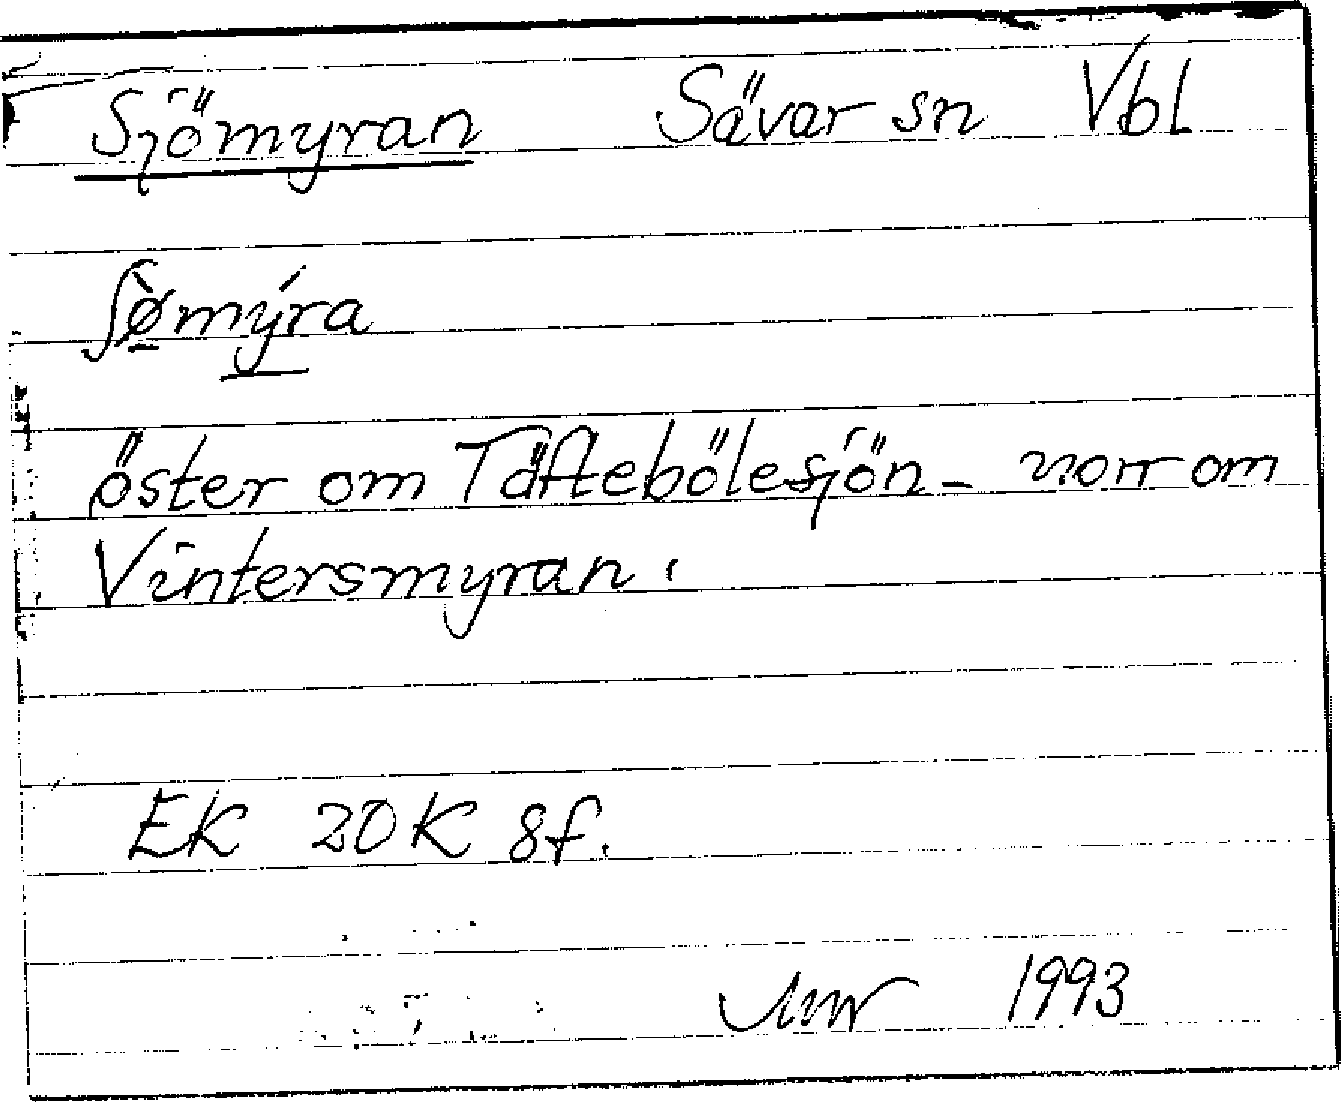 Sjömyran Sävar sn Vbl
ʃø̠̀mý̠ra
öster om Täftebölesjön - norr om
Vintersmyran.
EK 20K 8f.
1993